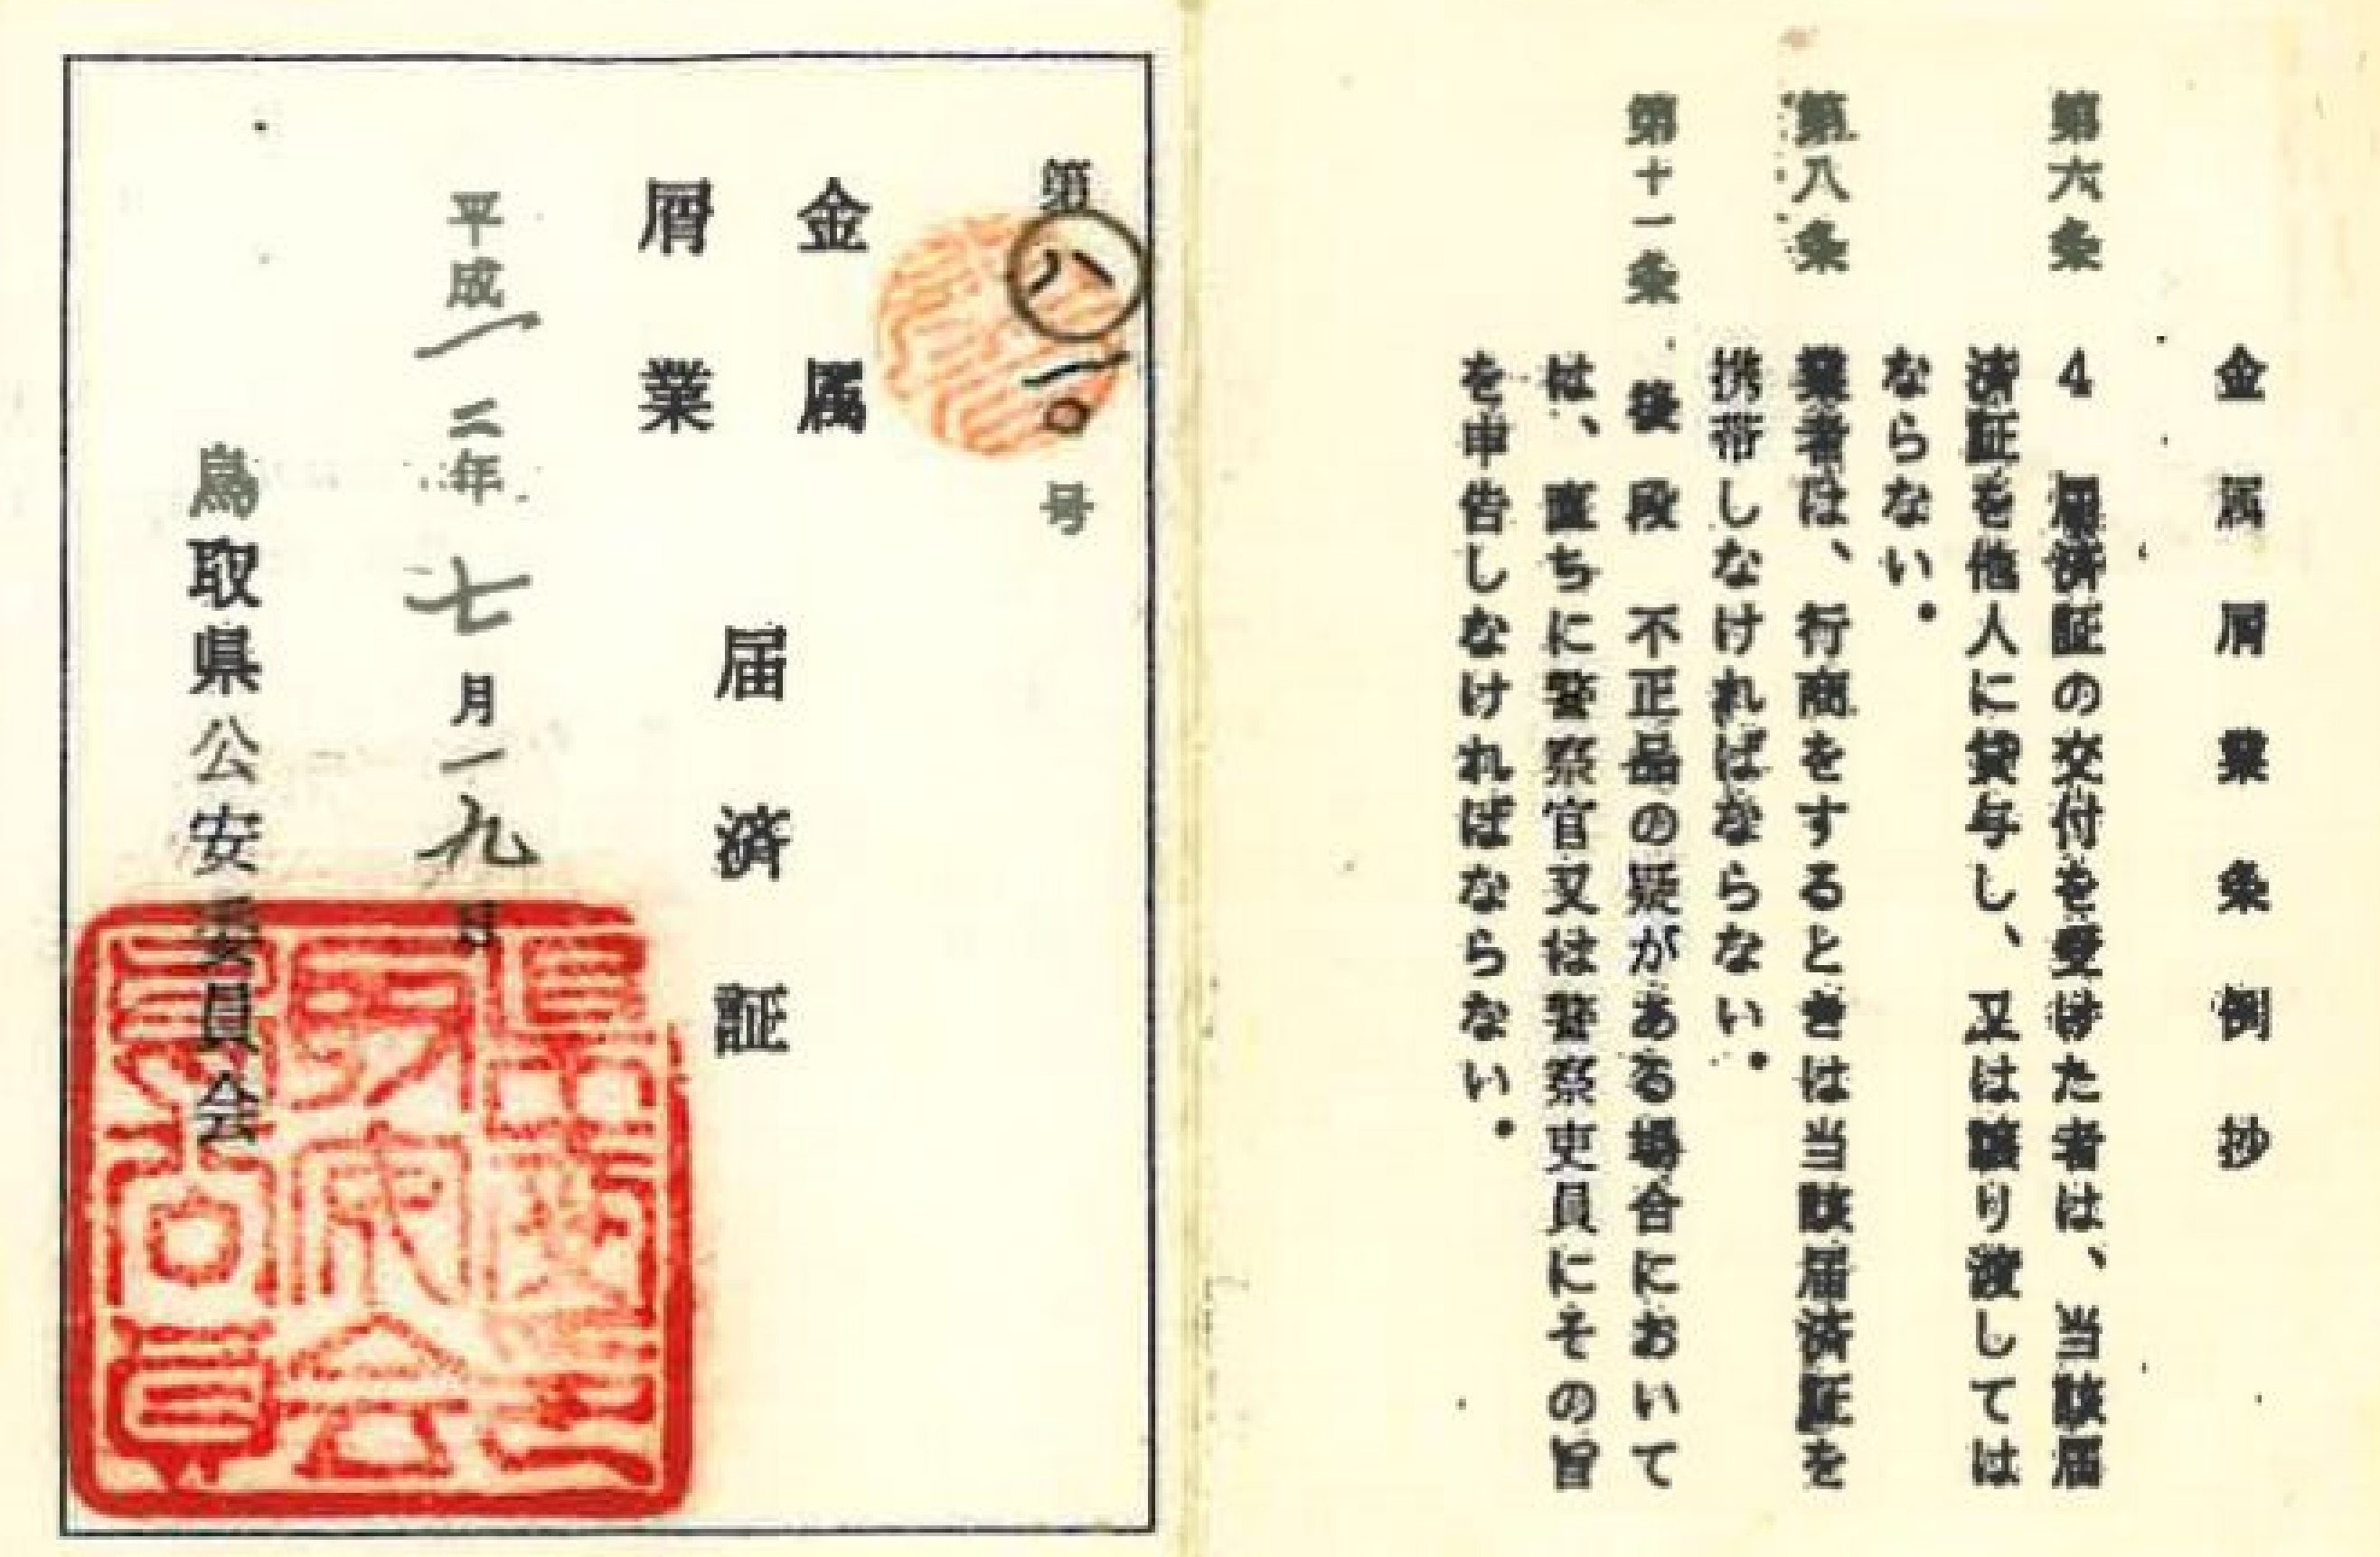 金属屑業条例抄
第六条 4 届済証の交付を受けた者は、当該届
済証を他人に貸与し、又は譲り渡しては
ならない。
第八条 業者は、行商をするときは当該届済証を
携帯しなければならない。
第十一条、後段 不正品の疑がある場合において
は、直ちに警察官又は警察吏員にその旨
を申告しなければならない。
第八一〇号
金属
屑業
届済証
平成一二年七月一九日
鳥取県公安委員会